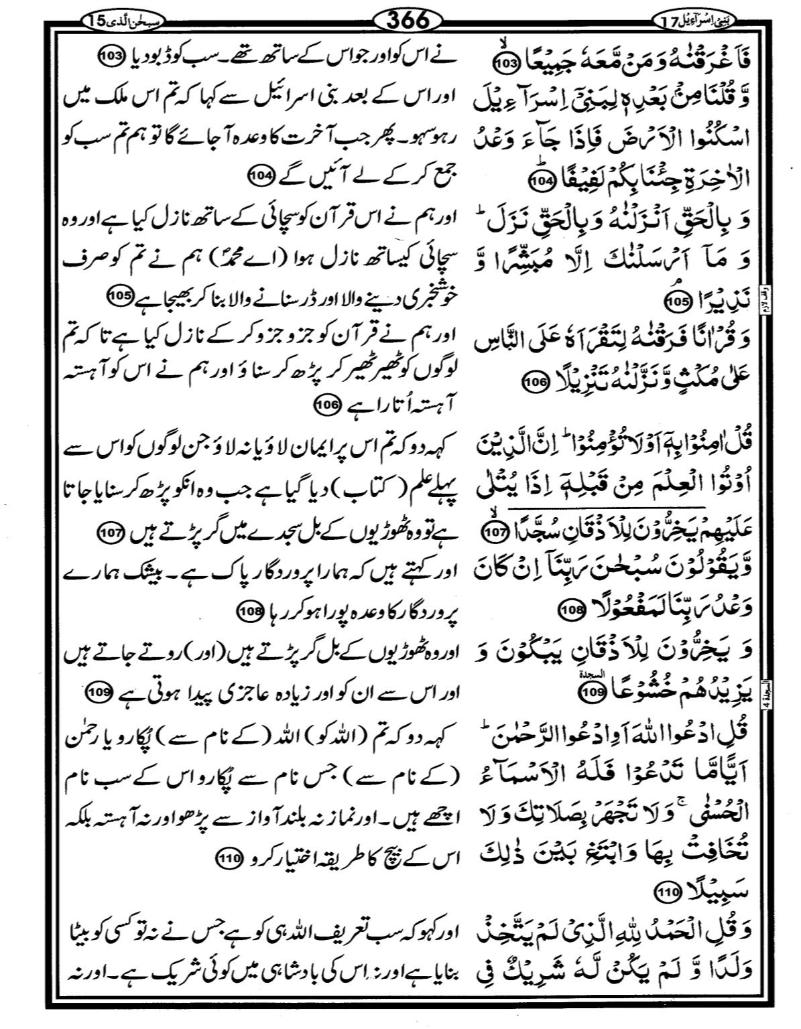 بَنِیْٓ اِسْرَآءِیْل 17
366
سبحٰن الّذی 15
فَاَغْرَقْنٰهُ وَمَنْ مَّعَهٗ جَمِیْعًا ۙ 103
وَّ قُلْنَا مِنْۢ بَعْدِهٖ لِبَنِیْۤ اِسْرَآءِیْلَ
اسْكُنُوا الْاَرْضَ فَاِذَا جَآءَ وَعْدُ
الْاٰخِرَةِ جِئْنَا بِكُمْ لَفِیْفًا ؕ 104
وَ بِالْحَقِّ اَنْزَلْنٰهُ وَبِالْحَقِّ نَزَلَ ؕ
وَ مَاۤ اَرْسَلْنٰكَ اِلَّا مُبَشِّرًا وَّ
نَذِیْرًا ۘ 105
وَقُرْاٰنًا فَرَقْنٰهُ لِتَقْرَاَهٗ عَلَی النَّاسِ
عَلٰی مُكْثٍ وَّنَزَّلْنٰهُ تَنْزِیْلًا 106
قُلْ اٰمِنُوْا بِهٖۤ اَوْلَا تُؤْمِنُوْا ؕ اِنَّ الَّذِیْنَ
اُوْتُوا الْعِلْمَ مِنْ قَبْلِهٖۤ اِذَا یُتْلٰی
عَلَیْهِمْ یَخِرُّوْنَ لِلْاَذْقَانِ سُجَّدًا ۙ 107
وَّیَقُوْلُوْنَ سُبْحٰنَ رَبِّنَاۤ اِنْ كَانَ
وَعْدُ رَبِّنَا لَمَفْعُوْلًا 108
وَ یَخِرُّوْنَ لِلْاَذْقَانِ یَبْكُوْنَ وَ
یَزِیْدُهُمْ خُشُوْعًا السجدة 109
قُلِ ادْعُوا اللهَ اَوِادْعُوا الرَّحْمٰنَ ؕ
اَیًّا مَّا تَدْعُوْا فَلَهُ الْاَسْمَآءُ
الْحُسْنٰی ۚ وَلَا تَجْهَرْ بِصَلَاتِكَ وَلَا
تُخَافِتْ بِهَا وَابْتَغِ بَیْنَ ذٰلِكَ
سَبِیْلًا 110
وَ قُلِ الْحَمْدُ لِلّٰهِ الَّذِیْ لَمْ یَتَّخِذْ
وَلَدًا وَّ لَمْ یَكُنْ لَّهٗ شَرِیْكٌ فِی
نے اس کو اور جو اس کے ساتھ تھے۔ سب کو ڈبو دیا 103
اور اس کے بعد بنی اسرائیل سے کہا کہ تم اس ملک میں
رہو سہو۔ پھر جب آخرت کا وعدہ آ جائے گا تو ہم تم سب کو
جمع کر کے لے آئیں گے 104
اور ہم نے اس قرآن کو سچائی کے ساتھ نازل کیا ہے اور وہ
سچائی کیساتھ نازل ہوا (اے محمدؐ) ہم نے تم کو صرف
خوشخبری دینے والا اور ڈر سنانے والا بنا کر بھیجا ہے 105
اور ہم نے قرآن کو جزو جزو کر کے نازل کیا ہے تا کہ تم
لوگوں کو ٹھیر ٹھیر کر پڑھ کر سناؤ اور ہم نے اس کو آہستہ
آہستہ اُتارا ہے 106
کہہ دو کہ تم اس پر ایمان لاؤ یا نہ لاؤ جن لوگوں کو اس سے
پہلے علم (کتاب) دیا گیا ہے جب وہ انکو پڑھ کر سنایا جاتا
ہے تو وہ ٹھوڑیوں کے بل سجدے میں گر پڑتے ہیں 107
اور کہتے ہیں کہ ہمارا پروردگار پاک ہے۔ بیشک ہمارے
پروردگار کا وعدہ پورا ہو کر رہا 108
اور وہ ٹھوڑیوں کے بل گر پڑتے ہیں (اور) روتے جاتے ہیں
اور اس سے ان کو اور زیادہ عاجزی پیدا ہوتی ہے 109
کہہ دو کہ تم (اللہ کو) اللہ (کے نام سے) پُکارو یا رحمٰن
(کے نام سے) جس نام سے پُکارو اس کے سب نام
اچھے ہیں۔ اور نماز نہ بلند آواز سے پڑھو اور نہ آہستہ بلکہ
اس کے بیچ کا طریقہ اختیار کرو 110
اور کہو کہ سب تعریف اللہ ہی کو ہے جس نے نہ تو کسی کو بیٹا
بنایا ہے اور نہ اس کی بادشاہی میں کوئی شریک ہے۔ اور نہ
وقف لازم
السجدة 4